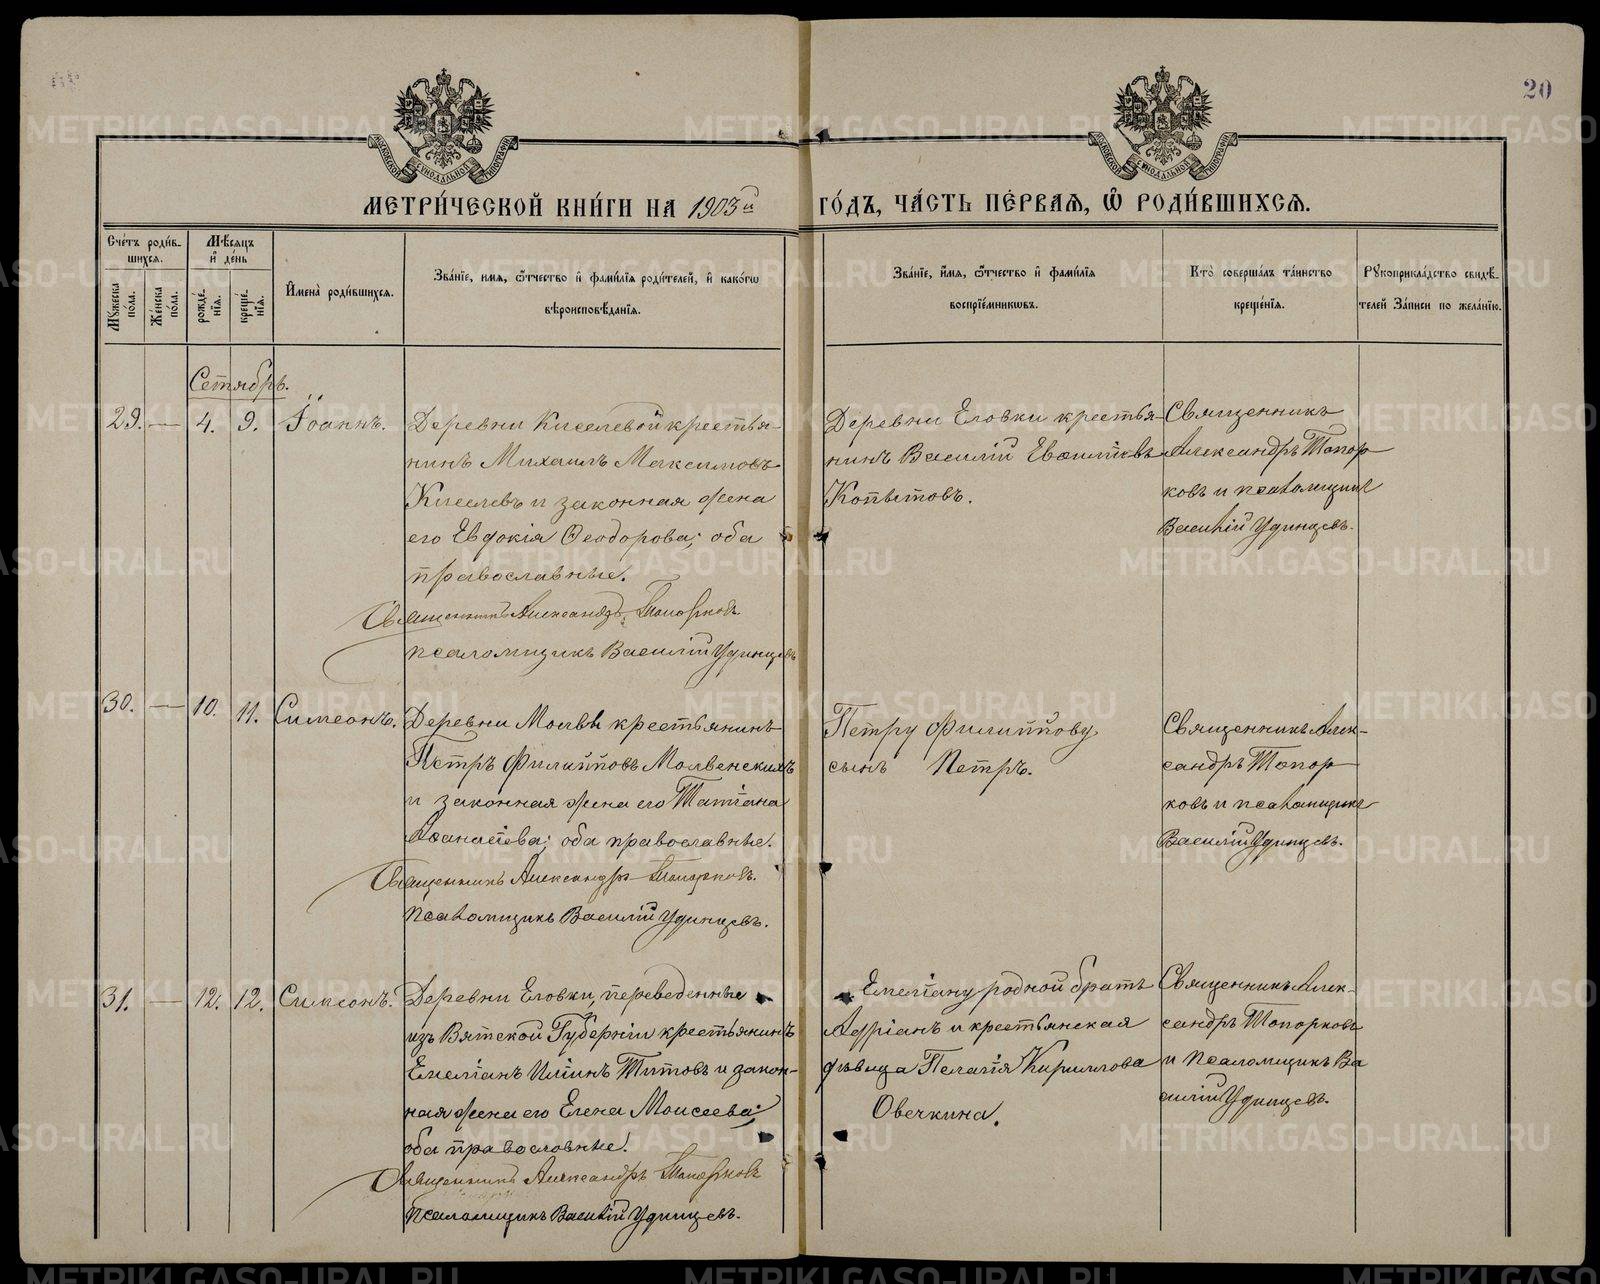 20
МОСКОВСКОЙ СѴНОДАЛЬНОЙ ТИПОГРАФІИ
МОСКОВСКОЙ СѴНОДАЛЬНОЙ ТИПОГРАФІИ
МЕТРИ́ЧЕСКОЙ КНИ́ГИ НА 1903й ГО́ДЪ, ЧА́СТЬ ПЕ́РВАЯ, Ѡ҆ РОДИ́ВШИХСЯ.
Сче́тъ роди́в-
шихся.
Мꙋжеска по́ла.
Же́нска по́ла.
Мѣ́сяцъ
и҆ де́нь
рожде́-
нїя.
креще́-
нїя.
И҆мена̀ роди́вшихся.
Зва́нїе, имя, ѻ҆́тчество и҆ фами́лїя роди́телей, и҆ како́гѡ
вѣроисповѣ́данїя.
Зва́нїе, и҆́мя, ѻ҆́тчество и҆ фами́лїя
воспрїе́мникѡвъ.
Кто̀ соверша́лъ та́инство
креще́нїя.
Рꙋкоприкла́дство свидѣ́-
телей За́писи по жела́нїю.
Сетябрь.
29. — 4. 9. Іоаннъ.
Деревни Киселевой крестья-
нинъ Михаилъ Максимовъ
Киселевъ и законная жена
его Евдокія Ѳеодорова; оба
православные.
Священникъ Александръ Топорковъ.
псаломщикъ Василій Удинцевъ
Деревни Еловки крестья-
нинъ Василій
Копытовъ.
Священникъ
Александръ Топор
ковъ и псаломщикъ
Василій Удинцевъ.
30. — 10. 11. Симеонъ.
Деревни Молвы крестьянинъ
Петръ Филипповъ Молвенскихъ
и законная жена его Татіана
Аѳанасіева; оба православные.
Священникъ Александръ Топорковъ.
Псаломщикъ Василій Удинцевъ.
Петру Филиппову
сынъ Петръ.
Священникъ Алек-
сандръ Топор
ковъ и псаломщикъ
Василій Удинцевъ.
31. — 12. 12. Симеонъ.
Деревни Еловки, переведенные
изъ Вятской Губерніи крестьянинъ
Емеліанъ Иліинъ Титовъ и закон-
ная жена его Елена Моисеева;
оба православные.
Священникъ Александръ Топорковъ
Псаломщикъ Василій Удинцевъ.
Емеліану родной братъ
Адріанъ и крестьянская
дѣвица Пелагія Кириллова
Овечкина.
Священникъ Алек-
сандръ Топорковъ
и Псаломщикъ Ва
силій Удинцевъ.
METRIKI.GASO-URAL.RU